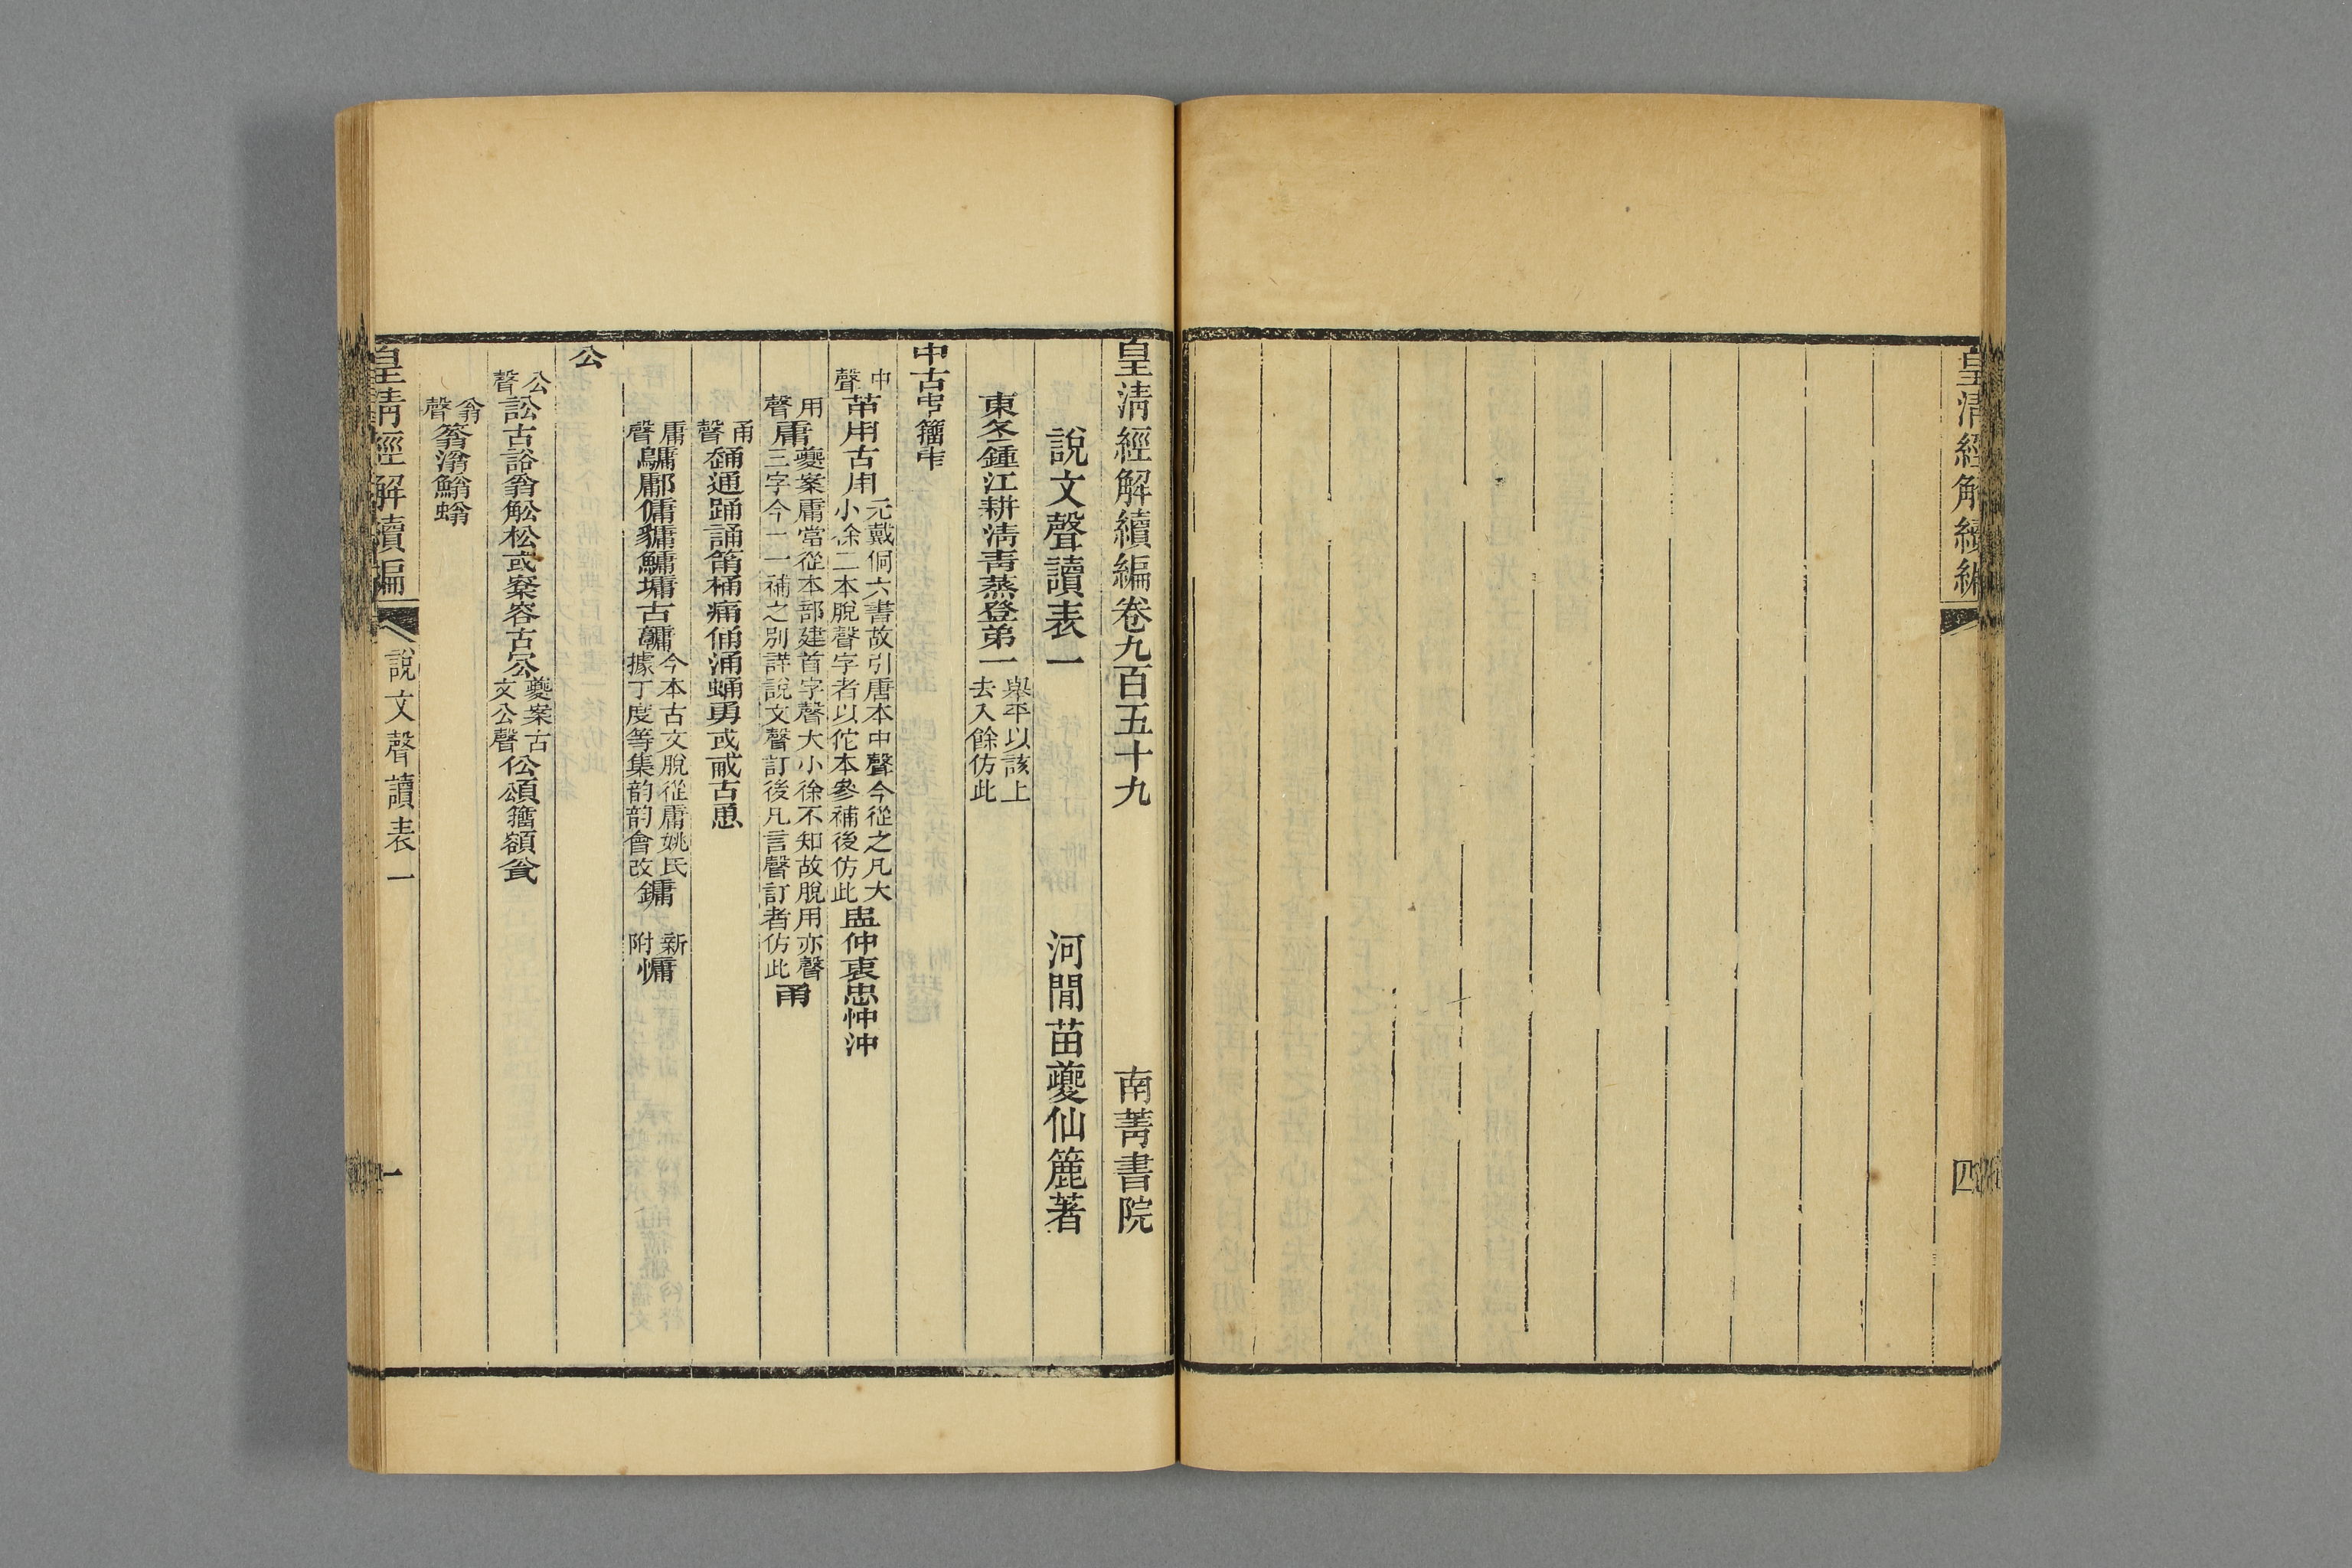 皇清經解續編
四
皇清經解續編卷九百五十九 南菁書院
說文聲讀表一 河閒苗夔仙簏著
東冬鍾江耕淸靑蒸登弟一 舉平以該上去入餘仿此
中古𠁧籀𠁩
中聲 𦬕用古𤰃 元戴侗六書故引唐本中聲今從之凡大小徐二本脫聲字者以佗本參補後仿此 盅仲衷忠忡沖
用聲 庸 夔案庸當從本部建首字聲大小徐不知故脫用亦聲三字今一一補之別詳說文聲訂後凡言聲訂者仿此 甬
甬聲 𧚔通踊誦筩桶痛俑涌蛹勇或㦷古恿
庸聲 鷛鄘傭𤡐鱅墉古𩫏 今本古文脫從庸姚氏據丁度等集韵韵會改 鏞 新附 慵
公
公聲 訟古𧧗翁㲲松或㮤容古㝐 夔案古文公聲 伀頌籀額瓮
翁聲 蓊滃鰯螉
皇清經解續編 說文聲讀表一 一